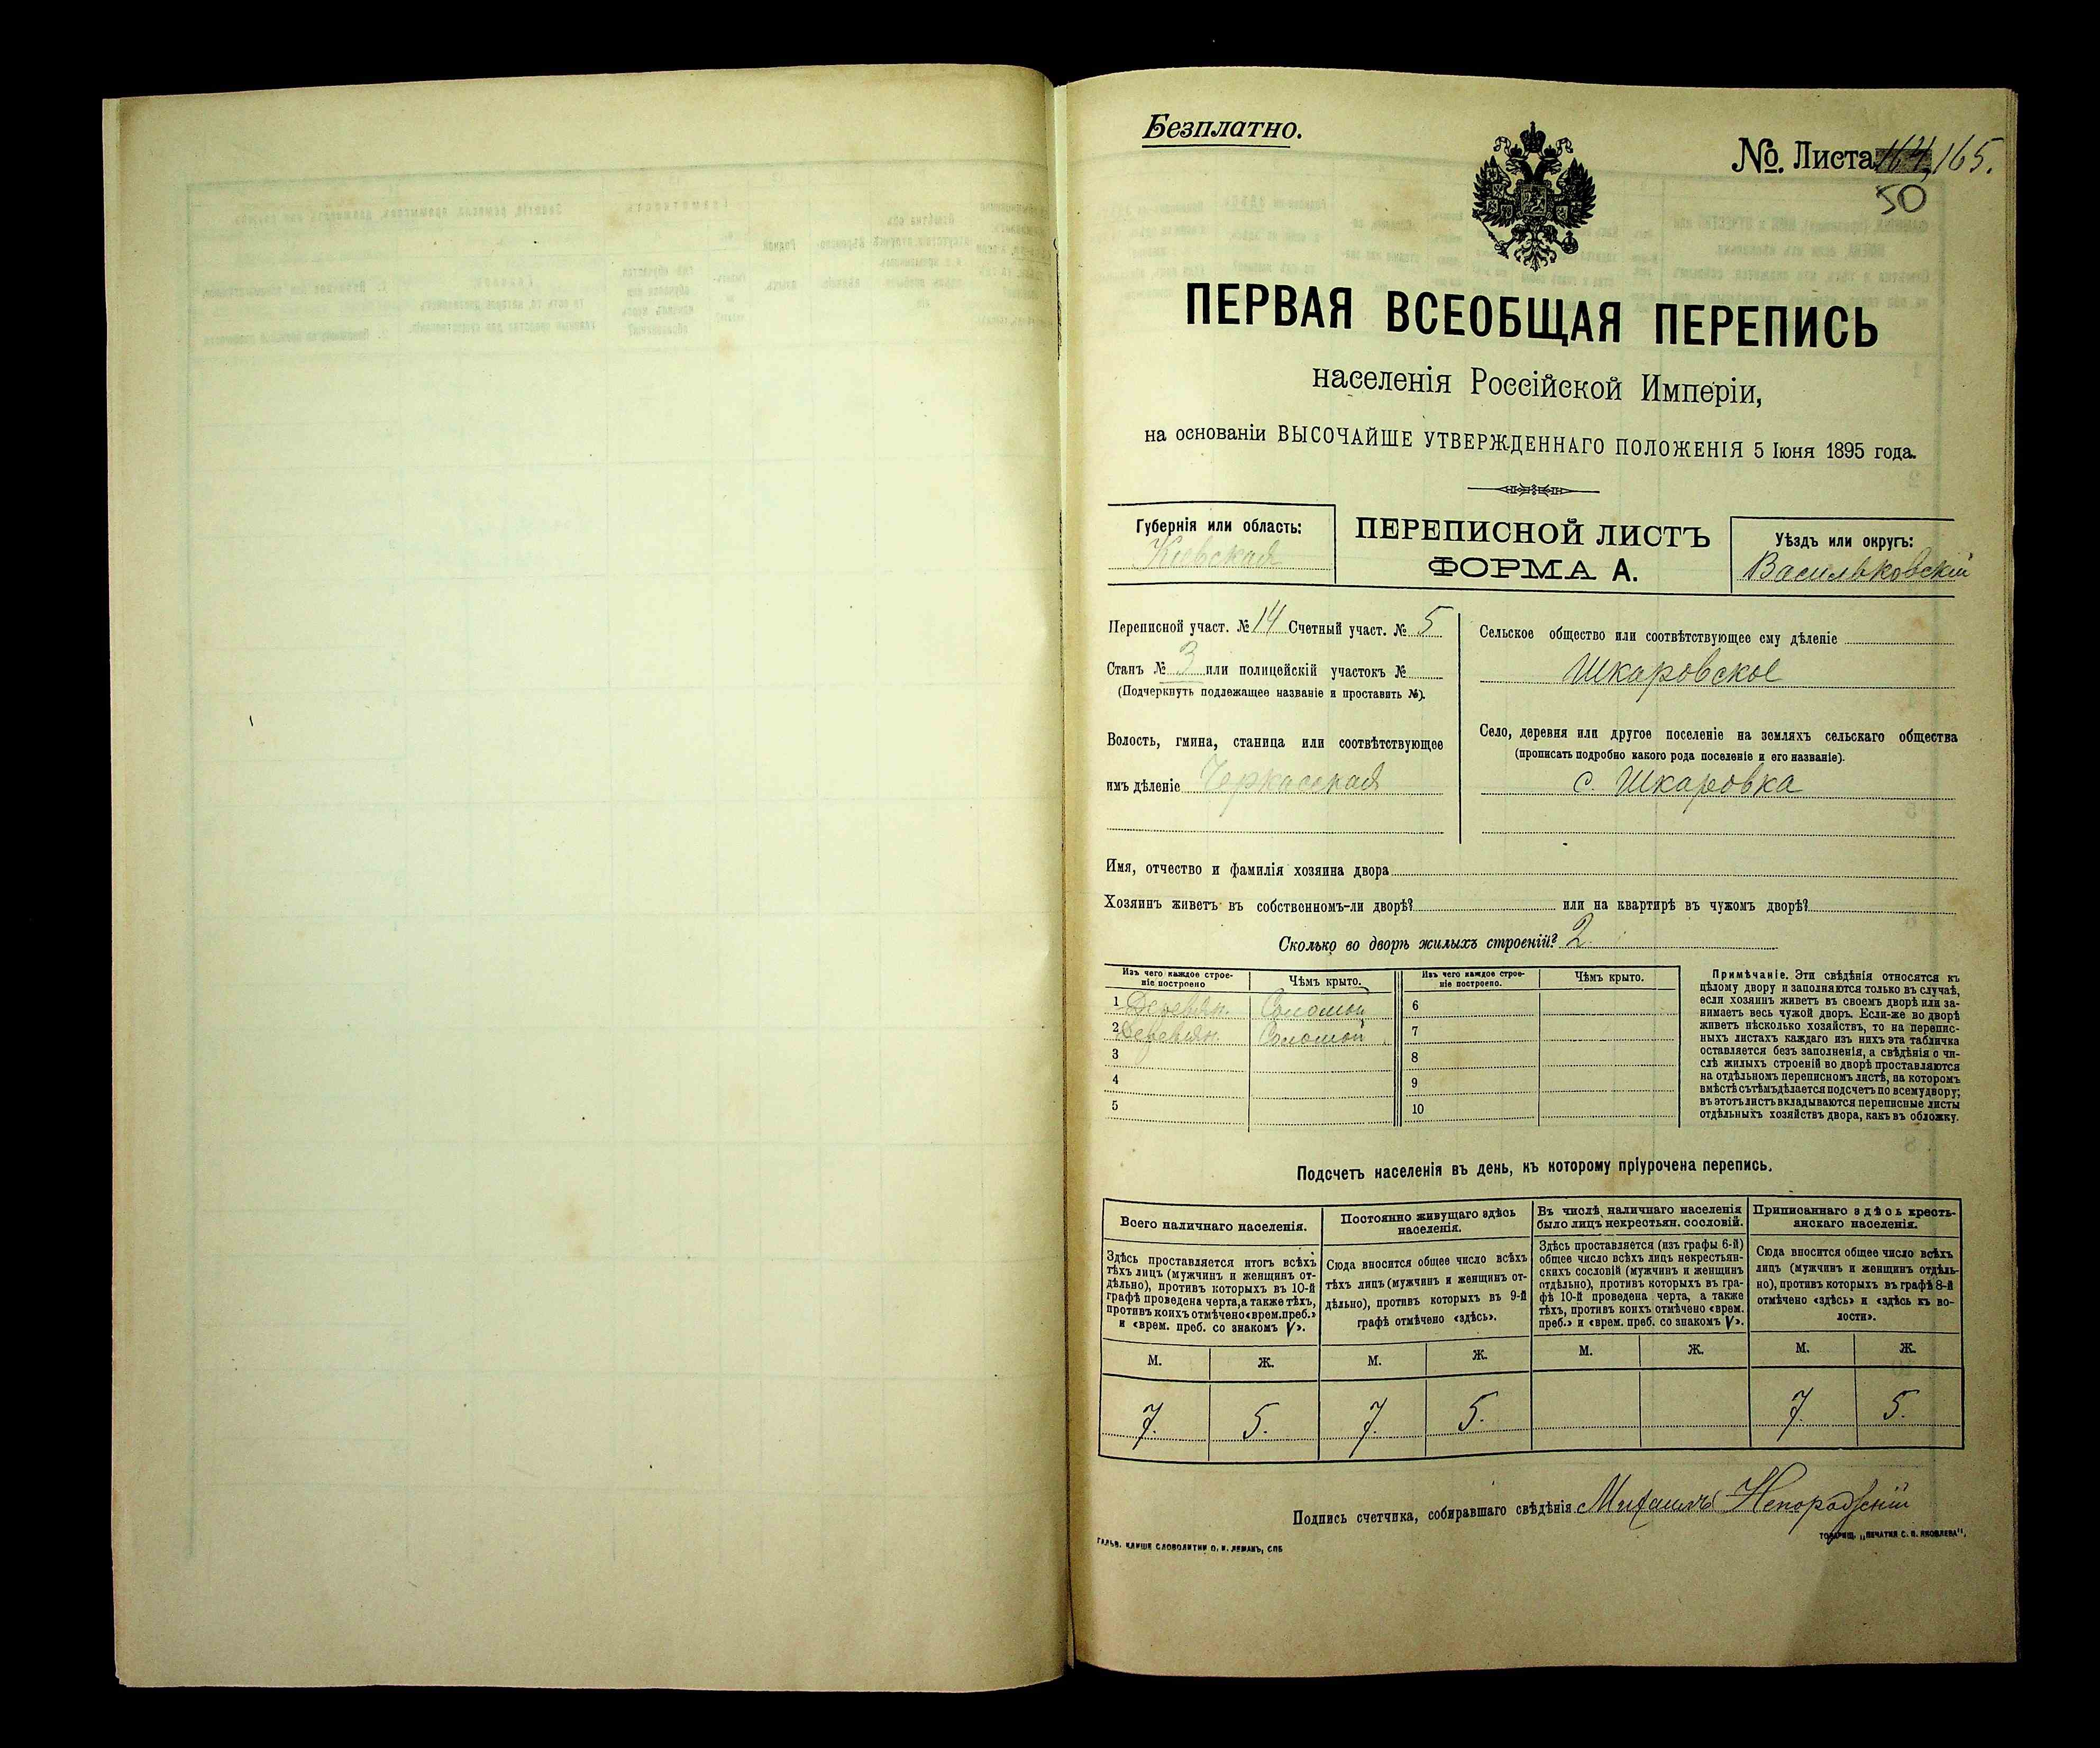 Безплатно.
№. Листа 164, 165.
50
ПЕРВАЯ ВСЕОБЩАЯ ПЕРЕПИСЬ
населенія Россійской Имперіи,
на основаніи ВЫСОЧАЙШЕ УТВЕРЖДЕННАГО ПОЛОЖЕНІЯ 5 Іюня 1895 года.
Губернія или область:
Кіевская
ПЕРЕПИСНОЙ ЛИСТЪ
ФОРМА А.
Уѣздъ или округъ:
Васильковскій
Переписной участ. № 14 Счетный участ. № 5
Станъ № 3 или полицейскій участокъ №
(Подчеркнуть подлежащее названіе и проставить №).
Волость, гмина, станица или соотвѣтствующее
имъ дѣленіе Черкасская
Сельское общество или соотвѣтствующее ему дѣленіе
Шкаровское
Село, деревня или другое поселеніе на земляхъ сельскаго общества
(прописать подробно какого рода поселеніе и его названіе).
с. Шкаровка
Имя, отчество и фамилія хозяина двора
Хозяинъ живетъ въ собственномъ-ли дворѣ? или на квартирѣ въ чужомъ дворѣ?
Сколько во дворѣ жилыхъ строеній? 2.
Изъ чего каждое строе-
ніе построено
Чѣмъ крыто.
1 Деревян. Соломой
2 Деревян. Соломой
3
4
5
Изъ чего каждое строе-
ніе построено.
Чѣмъ крыто.
6
7
8
9
10
Примѣчаніе. Эти свѣдѣнія относятся къ
цѣлому двору и заполняются только въ случаѣ,
если хозяинъ живетъ въ своемъ дворѣ или за-
нимаетъ весь чужой дворъ. Если-же во дворѣ
живетъ нѣсколько хозяйствъ, то на перепис-
ныхъ листахъ каждаго изъ нихъ эта табличка
оставляется безъ заполненія, а свѣдѣнія о чи-
слѣ жилыхъ строеній во дворѣ проставляются
на отдѣльномъ переписномъ листѣ, на которомъ
вмѣстѣ съ тѣмъ дѣлается подсчетъ по всему двору;
въ этотъ листъ вкладываются переписные листы
отдѣльныхъ хозяйствъ двора, какъ въ обложку.
Подсчетъ населенія въ день, къ которому пріурочена перепись.
Всего наличнаго населенія.
Здѣсь проставляется итогъ всѣхъ
тѣхъ лицъ (мужчинъ и женщинъ от-
дѣльно), противъ которыхъ въ 10-й
графѣ проведена черта, а также тѣхъ,
противъ коихъ отмѣчено «врем. преб.»
и «врем. преб. со знакомъ V».
Постоянно живущаго здѣсь
населенія.
Сюда вносится общее число всѣхъ
тѣхъ лицъ (мужчинъ и женщинъ от-
дѣльно), противъ которыхъ въ 9-й
графѣ отмѣчено «здѣсь».
Въ числѣ наличнаго населенія
было лицъ некрестьян. сословій.
Здѣсь проставляется (изъ графы 6-й)
общее число всѣхъ лицъ некрестьян-
скихъ сословій (мужчинъ и женщинъ
отдѣльно), противъ которыхъ въ гра-
фѣ 10-й проведена черта, а также
тѣхъ, противъ коихъ отмѣчено «врем.
преб.» и «врем. преб. со знакомъ V».
Приписаннаго здѣсь кресть-
янскаго населенія.
Сюда вносится общее число всѣхъ
лицъ (мужчинъ и женщинъ отдѣль-
но), противъ которыхъ въ графѣ 8-й
отмѣчено «здѣсь» и «здѣсь къ во-
лости».
М. Ж. М. Ж. М. Ж. М. Ж.
7. 5. 7. 5. 7. 5.
Подпись счетчика, собиравшаго свѣдѣнія Михаилъ
ГАЛЬВ. КЛИШЕ СЛОВОЛИТНИ О. И. ЛЕМАНЪ, СПБ
ТОВАРИЩ. „ПЕЧАТНЯ С. П. ЯКОВЛЕВА".